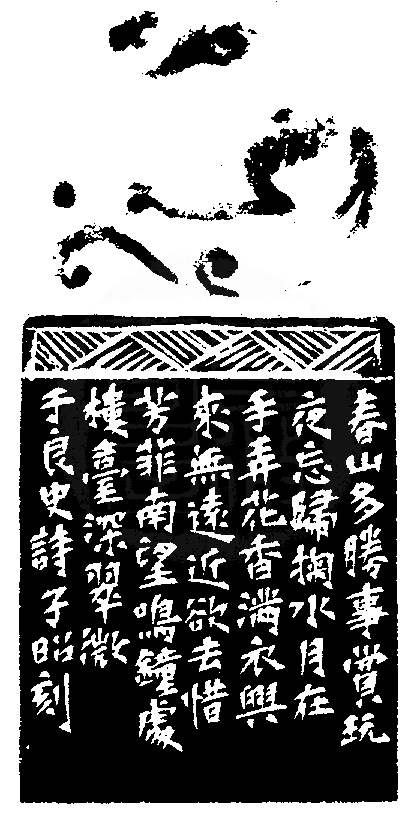 春山多勝事賞玩
夜忘歸掬水月在
手弄花香滿衣興
來無遠近欲去惜
芳菲南望鳴鐘處
樓臺深翠微
于良史詩子昭刻